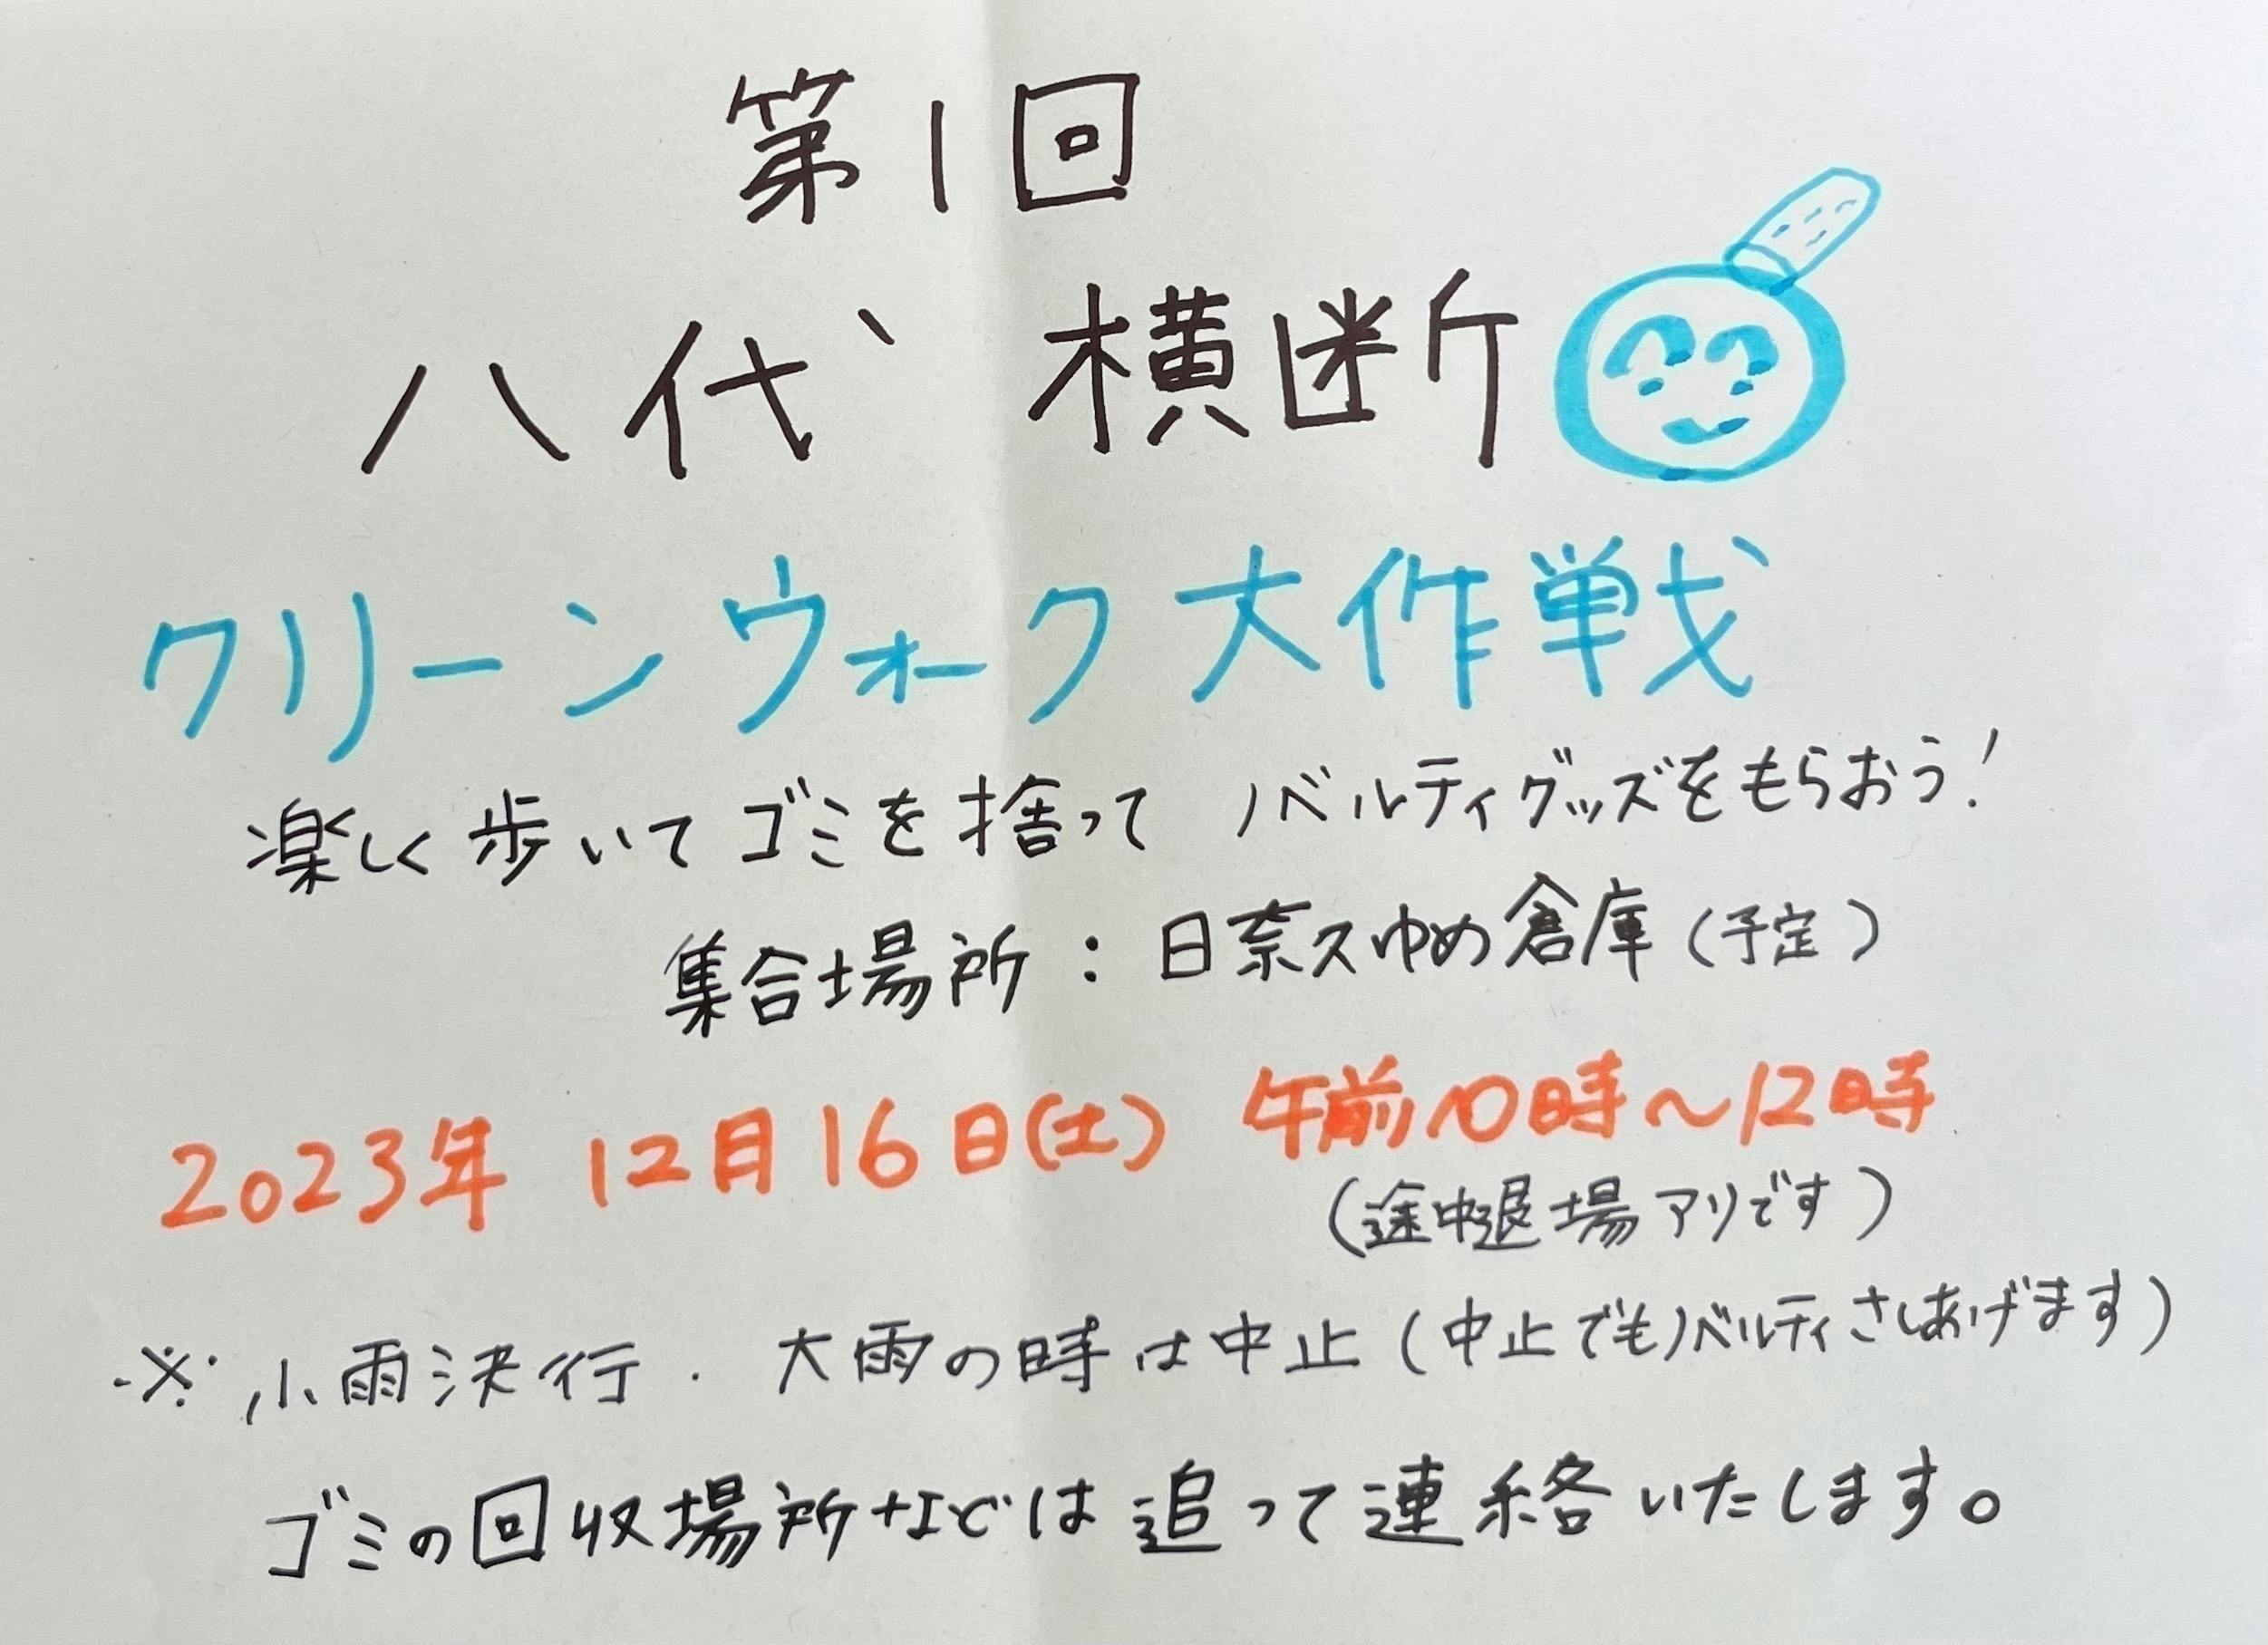 第1回
八代 横断
クリーンウォーク大作戦
楽しく歩いてゴミを捨って ノベルティグッズをもらおう!
集合場所:日奈久ゆめ倉庫(予定)
2023年 12月16日(土) 午前10時〜12時
(途中退場アリです)
※小雨決行. 大雨の時は中止(中止でもノベルティさしあげます)
ゴミの回収場所などは追って連絡いたします。